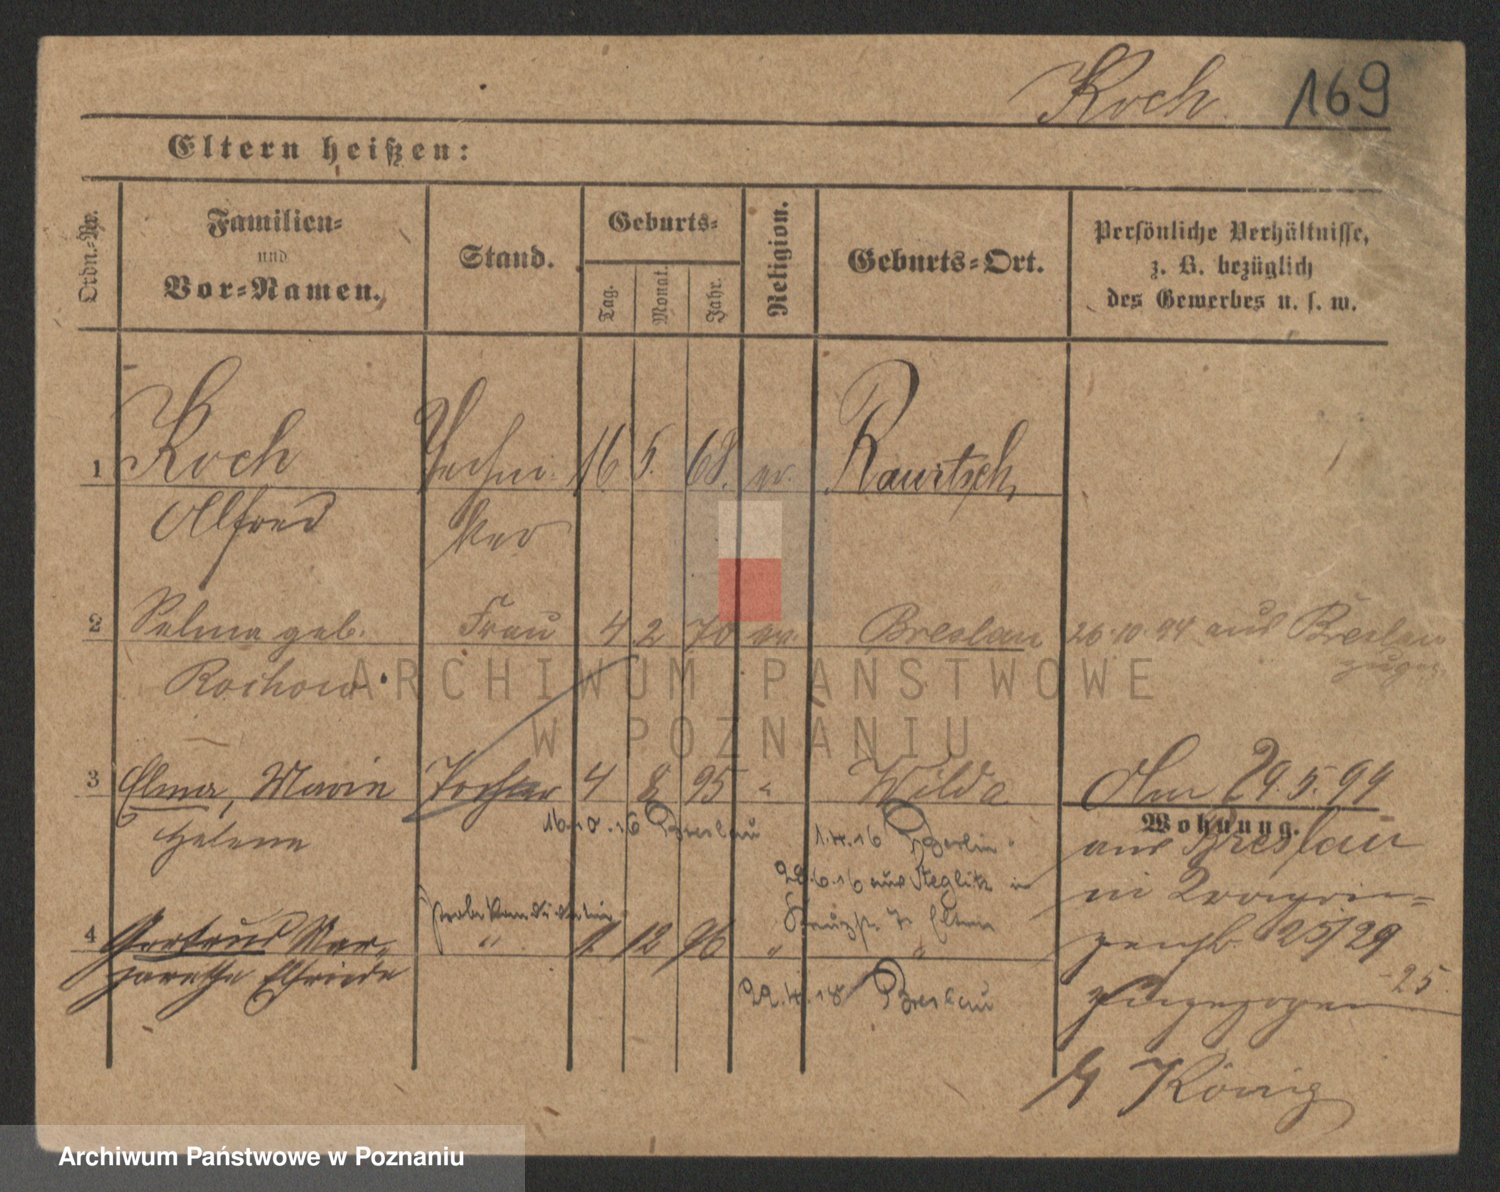 Koch 169
Eltern heißen:
Ordn.-Nr.
Familien-
und
Vor-Namen.
Stand.
Geburts-
Tag.
Monat.
Jahr.
Religion.
Geburts-Ort.
Persönliche Verhältnisse,
z. B. bezüglich
des Gewerbes u. s. w.
1 Koch Techni- 16 5. 68. ev. Raurtsch
Alfred ker
2 Selma geb. Frau 4 2 70 ev. Breslau 26.10.94 aus Breslau
Rochow zugez.
ARCHIWUM PAŃSTWOWE
W POZNANIU
3 Elma, Marie Tochter 4 8 95 " Wilda Am 29.5.94
Wohnung.
Helene 16.10.16 Breslau 1.4.16 Berlin aus Breslau
28.6.16 aus Steglitz in
4 Gertrud Mar- " 1. 12 96 " "
garethe Elfriede
25/29
22.4.18 Breslau
25.
zugezogen
König
Archiwum Państwowe w Poznaniu